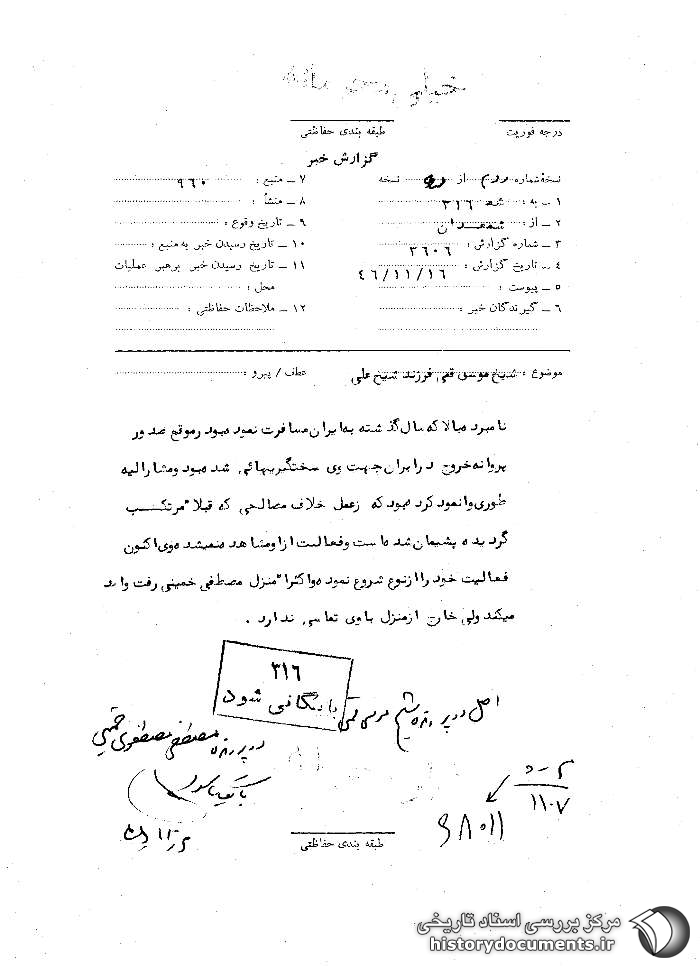 درجه فوریت
طبقه بندی حفاظتی
گزارش خبر
نسخهٔ شماره دوم از دو نسخه
۱ ـ به : ۳۱۶
۲ ـ از :
۳ ـ شماره گزارش : ۳۶۰۶
۴ ـ تاریخ گزارش : ۴۶/۱۱/۱۶
۵ ـ پیوست :
۶ ـ گیرندگان خبر :
۷ ـ منبع : ۹۶۰
۸ ـ منشأ :
۹ ـ تاریخ وقوع :
۱۰ ـ تاریخ رسیدن خبر به منبع :
۱۱ ـ تاریخ رسیدن خبر برهبر عملیات
محل :
۱۲ ـ ملاحظات حفاظتی :
موضوع : شیخ موسی قمی فرزند شیخ علی
عطف / پیرو :
نامبرده بالا که سال گذشته به ایران مسافرت نموده بود در موقع صدور
پروانه خروج در ایران جهت وی سختگیریهائی شده بود و مشارالیه
طوری وانمود کرده بود که از عمل خلاف مصالحی که قبلا" مرتکب
گردیده پشیمان شده است و فعالیت از او مشاهده نمیشد ه وی اکنون
فعالیت خود را از نوع شروع نموده و اکثرا" منزل مصطفی خمینی رفت و آمد
میکند ولی خارج از منزل با وی تماسی ندارد .
۳۱۶
بایگانی شود
اصل در پرونده شیخ موسی قمی
در پرونده مصطفی مصطفوی خمینی
بایگانی شود
۱۱۰۷
۶۸۰۱۱
طبقه بندی حفاظتی
مرکز بررسی اسناد تاریخی
historydocuments.ir